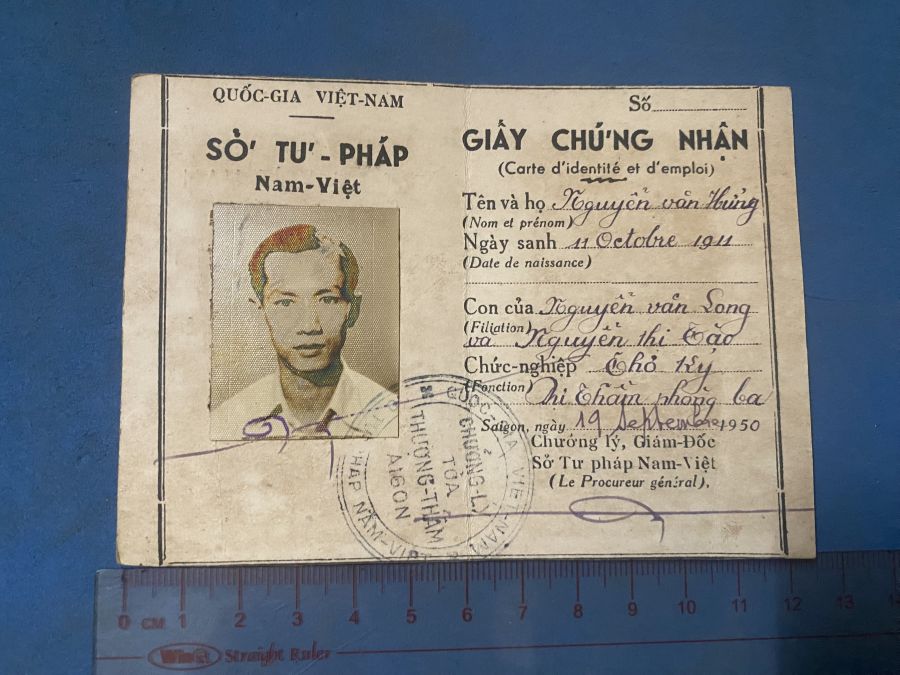 QUỐC-GIA VIỆT-NAM
SỞ TƯ-PHÁP
Nam-Việt
Số
GIẤY CHỨNG NHẬN
(Carte d'identité et d'emploi)
Tên và họ Nguyễn văn Hưng
(Nom et prénom)
Ngày sanh 11 Octobre 1911
(Date de naissance)
Con của Nguyễn văn Long
(Filiation)
và Nguyễn thi Tảo
Chức-nghiệp Thơ Ký
(Fonction)
Thẩm phòng ba
Saigon, ngày 19 Septembre 1950
Chưởng lý, Giám-Đốc
Sở Tư pháp Nam-Việt
(Le Procureur général).
QUỐC-GIA VIỆT-NAM
CHƯỞNG-LÝ
TÒA
THƯỢNG-THẨM
SAIGON
PHÁP NAM-VIỆT
0 CM 1 2 3 4 5 6 7 8 9 10 11 12 13 14
WinQ Straight Ruler